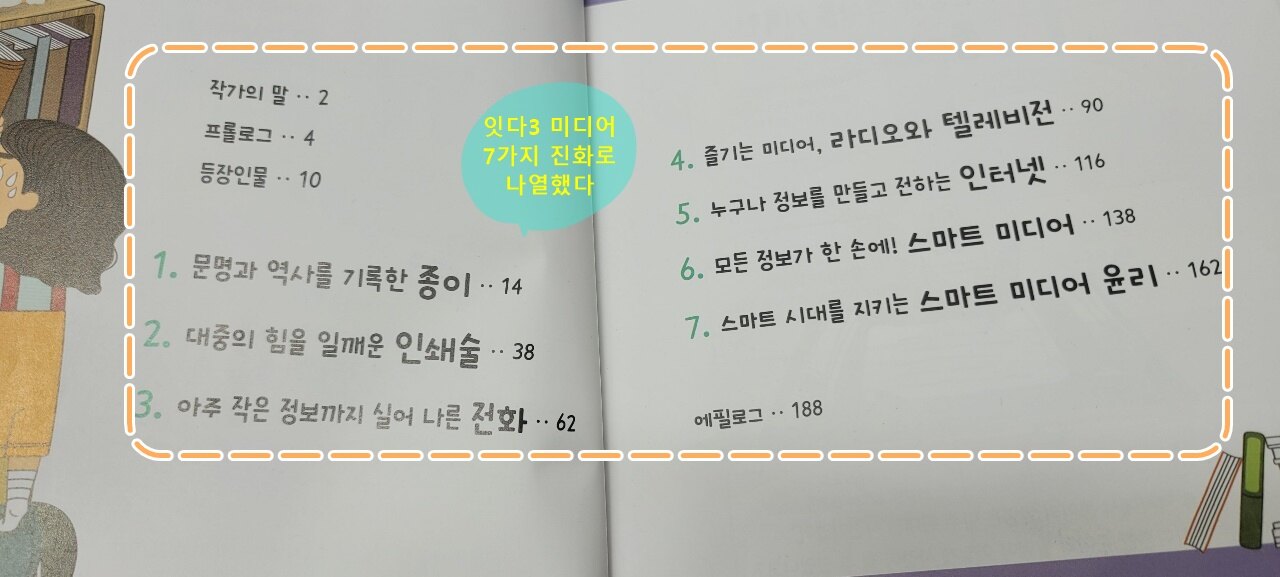 작가의 말 ·· 2
프롤로그 ·· 4
등장인물 ·· 10
잇다3 미디어
7가지 진화로
나열했다
1. 문명과 역사를 기록한 종이 ·· 14
2. 대중의 힘을 일깨운 인쇄술 ·· 38
3. 아주 작은 정보까지 실어 나른 전화 ·· 62
4. 즐기는 미디어, 라디오와 텔레비전 ·· 90
5. 누구나 정보를 만들고 전하는 인터넷 ·· 116
6. 모든 정보가 한 손에! 스마트 미디어 ·· 138
7. 스마트 시대를 지키는 스마트 미디어 윤리 ·· 162
에필로그 ·· 188